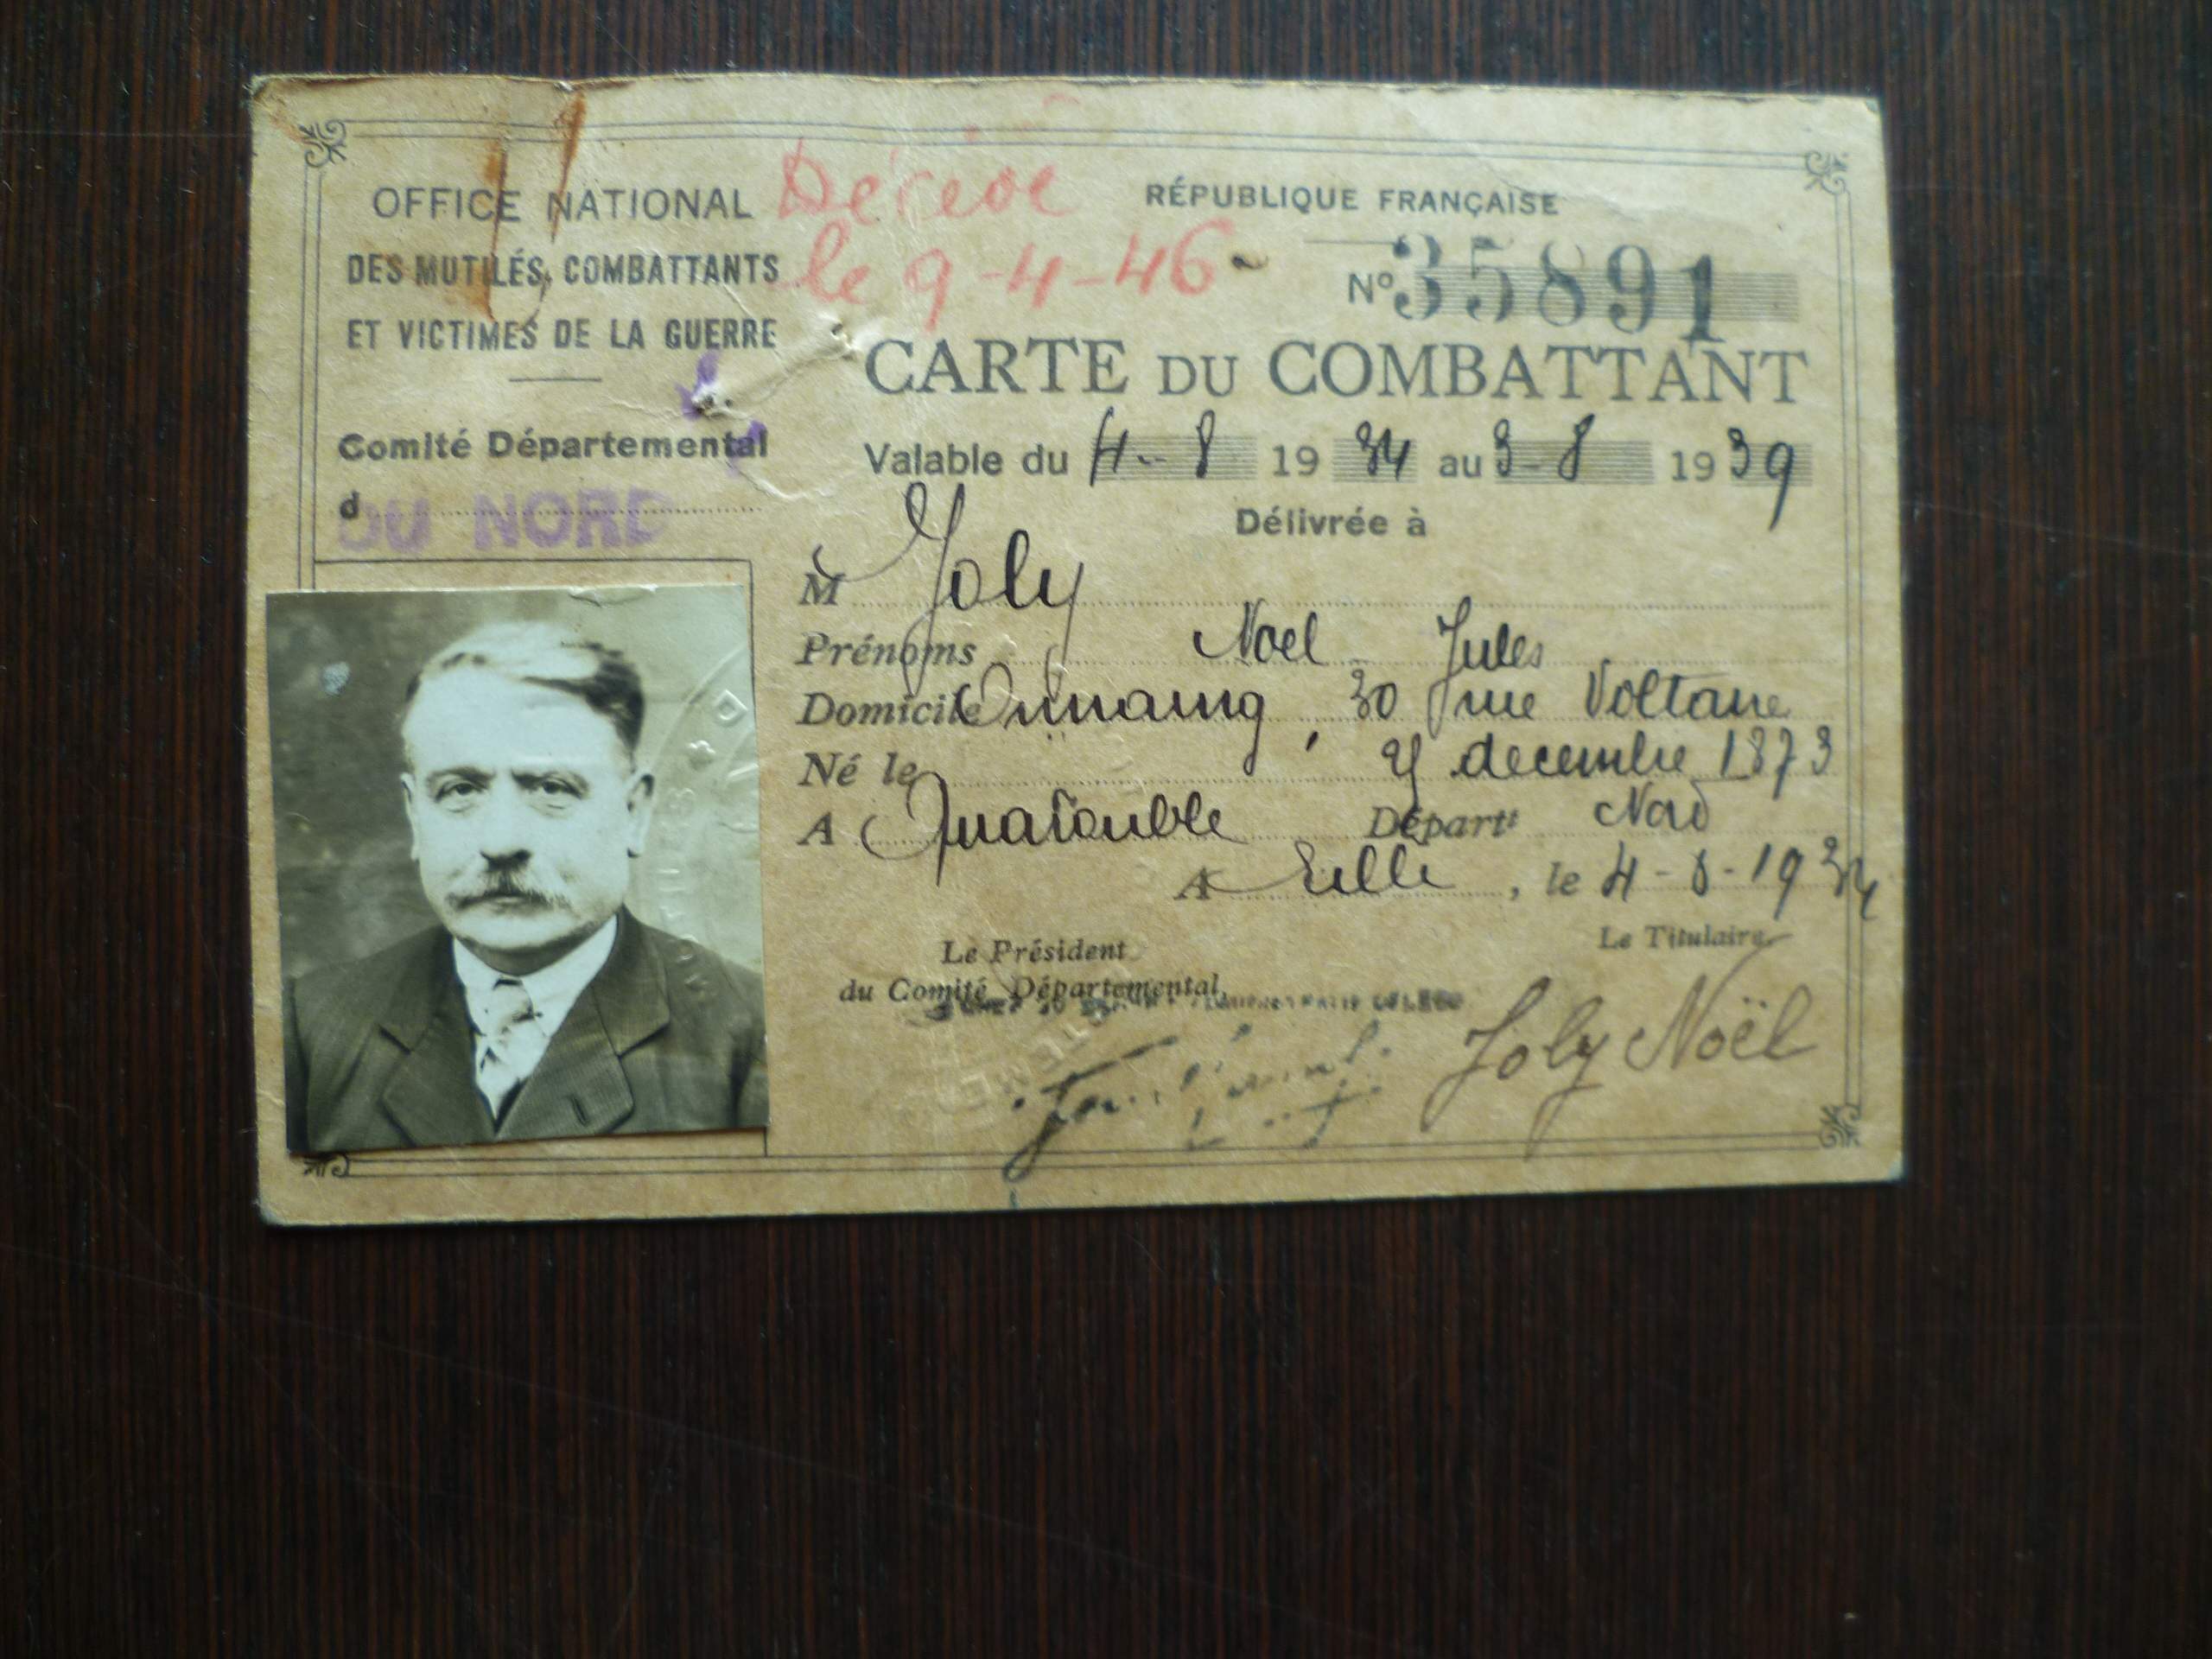 OFFICE NATIONAL
DES MUTILÉS, COMBATTANTS
ET VICTIMES DE LA GUERRE
Comité Départemental
d DU NORD
Décédé
le 9-4-46
RÉPUBLIQUE FRANÇAISE
Nº 35891
CARTE DU COMBATTANT
Valable du 4-8 1934 au 3-8 1939
Délivrée à
M Joly
Prénoms Noel Jules
Domicile Onnaing, 30 rue Voltaire
Né le decembre 1873
A Quarouble Départt Nord
A Lille, le 4-8-1934
Le Président
du Comité Départemental,
Le Titulaire
Joly Noël